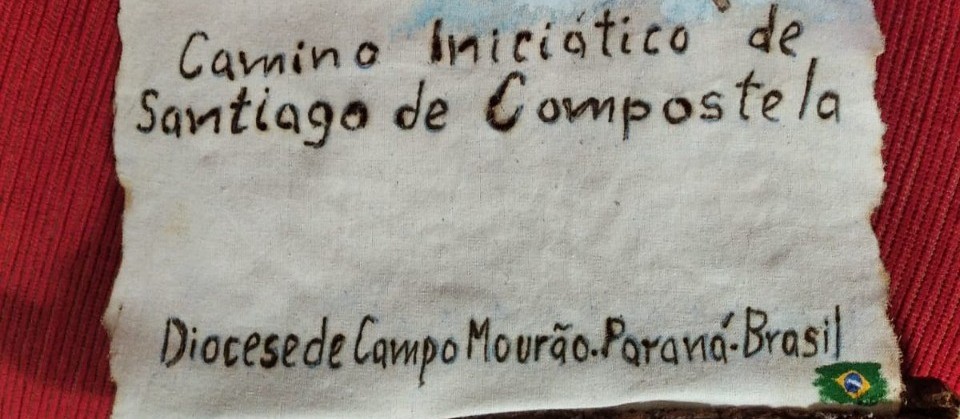 Camino Iniciático de
Santiago de Compostela
Diocese de Campo Mourão. Paraná-Brasil